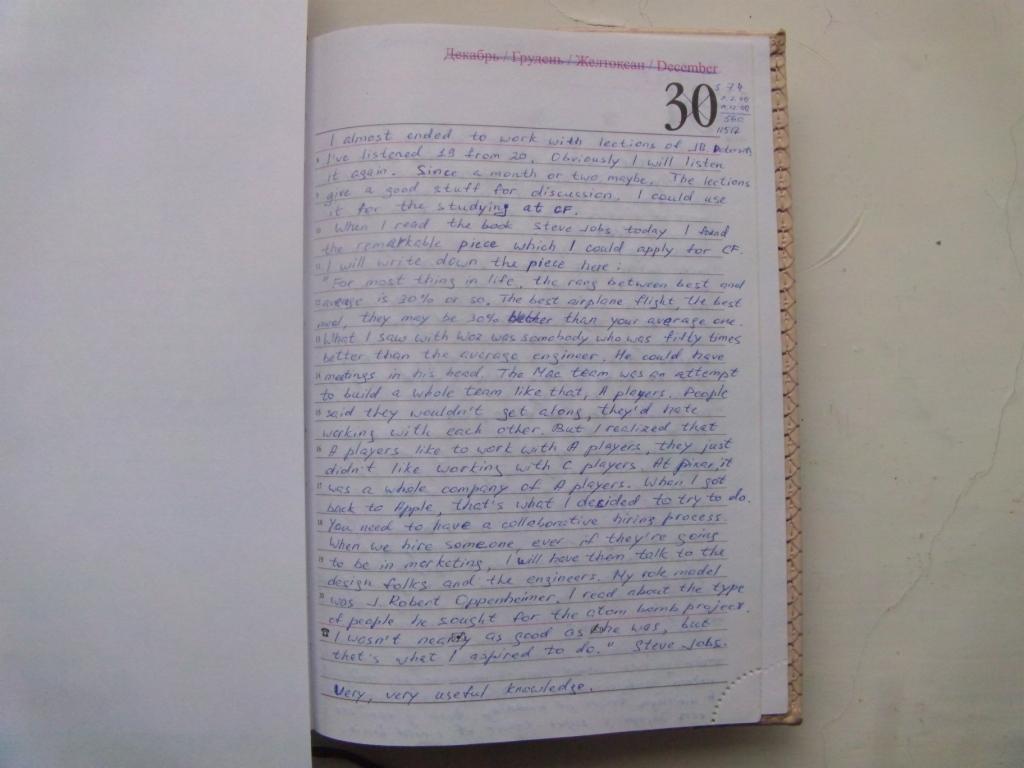 Декабрь / Грудень / Желтоқсан / December
30
I almost ended to work with lections of JB
I've listened 19 from 20. Obviously I will listen
it again. Since a month or two maybe. The lections
give a good stuff for discussion. I could use
it for the studying at CF.
When I read the book Steve Jobs today I found
the remarkable piece which I could apply for CF.
I will write down the piece here:
"For most thing in life, the rang between best and
average is 30% or so. The best airplane flight, the best
meal, they may be 30% better than your average one.
What I saw with Woz was somebody who was fifty times
better than the average engineer. He could have
meetings in his head. The Mac team was an attempt
to build a whole team like that, A players. People
said they wouldn't get along, they'd hate
working with each other. But I realized that
A players like to work with A players, they just
didn't like working with C players. At Pixar, it
was a whole company of A players. When I got
back to Apple, that's what I decided to try to do.
You need to have a collaborative hiring process.
When we hire someone, ever if they're going
to be in marketing, I will have them talk to the
design folks and the engineers. My role model
was J. Robert Oppenheimer. I read about the type
of people he sought for the atom bomb project.
I wasn't nearly as good as he was, but
that's what I aspired to do." Steve Jobs.
Very, very useful knowledge.